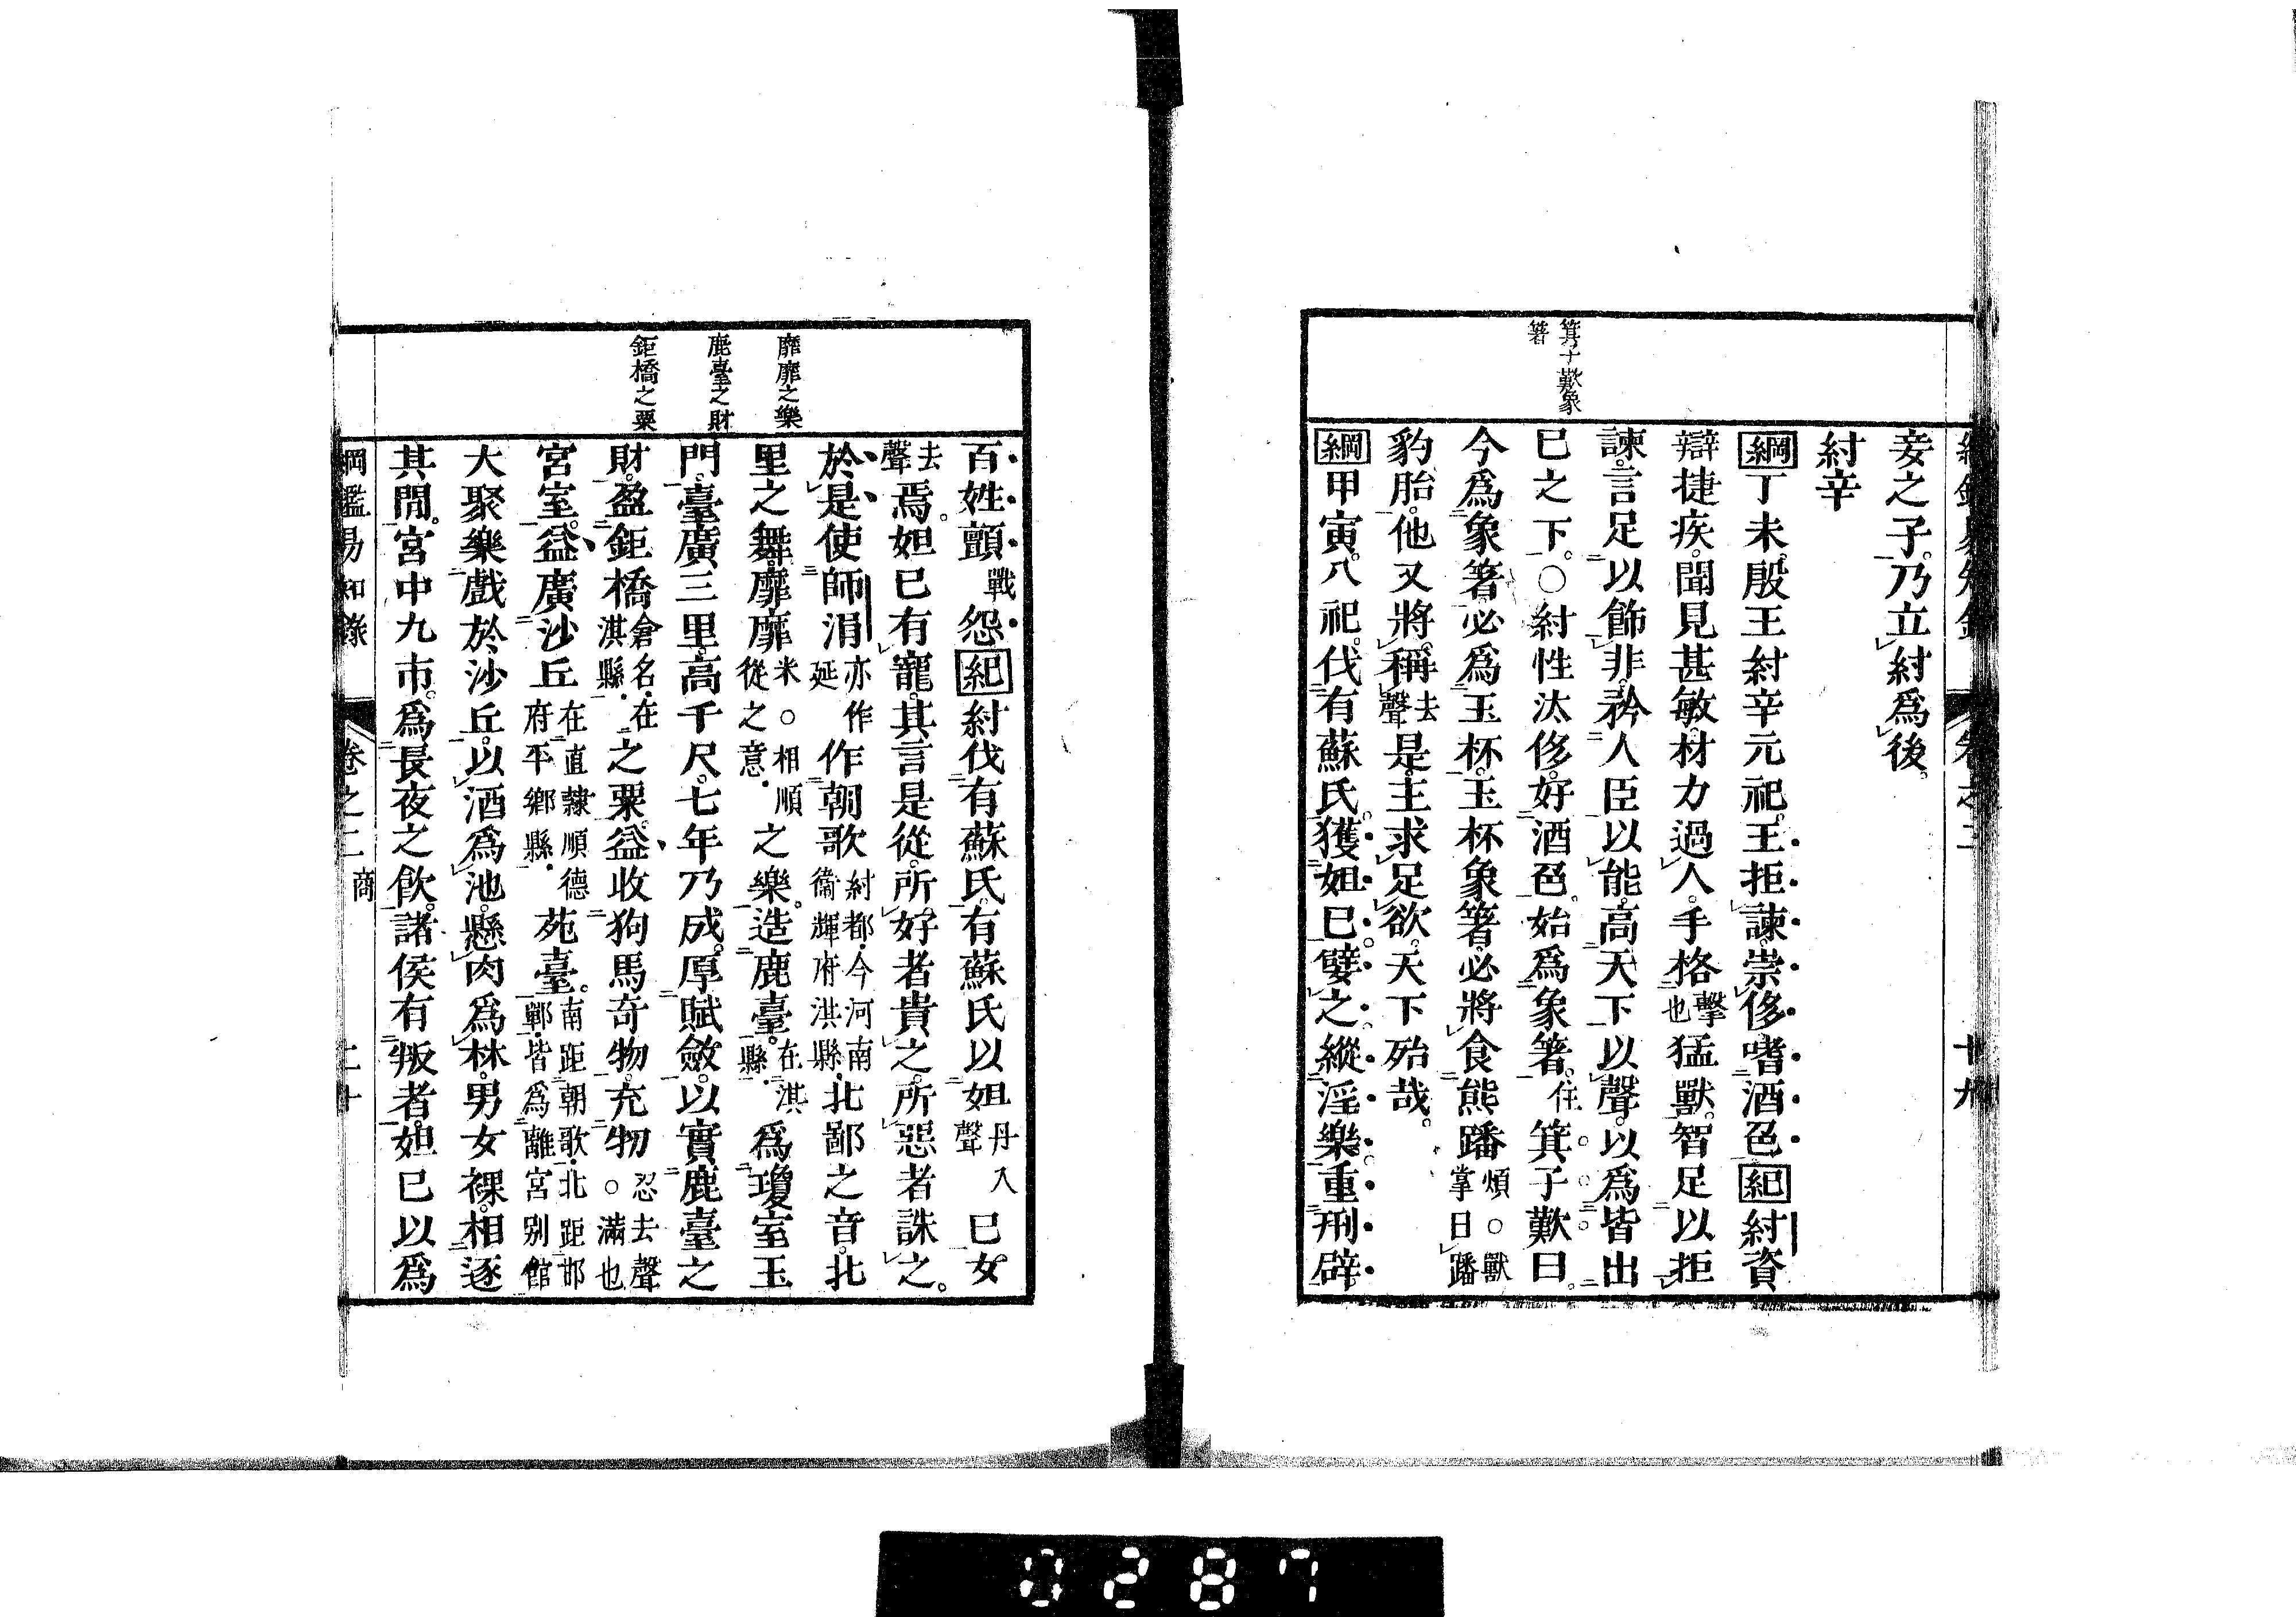 箕子歎象
箸
妾之子。乃立紂爲後。
紂辛
綱丁未。殷王紂辛元祀。王拒諫。崇侈嗜酒色。紀紂資
辯捷疾。聞見甚敏。材力過人。手格擊也猛獸。智足以拒
諫。言足以飾非。矜人臣以能。高天下以聲。以爲皆出
己之下。○紂性汰侈。好酒色。始爲象箸。住箕子歎曰。
今爲象箸。必爲玉杯。玉杯象箸。必將食熊蹯煩○獸掌曰蹯
豹胎。他又將稱去聲是。主求足欲。天下殆哉。
綱甲寅。八祀。伐有蘇氏。獲妲己。嬖之。縱淫樂。重刑辟。
靡靡之樂
鹿臺之財
鉅橋之粟
百姓顫戰怨。紀紂伐有蘇氏。有蘇氏以妲丹入聲己女
去聲焉。妲己有寵。其言是從。所好者貴之。所惡者誅之。
於是使師涓亦作延作朝歌紂都。今河南衞輝府淇縣。北鄙之音。北
里之舞。靡靡米○相順從之意。之樂。造鹿臺。在淇縣。爲瓊室玉
門。臺廣三里。高千尺。七年乃成。厚賦斂。以實鹿臺之
財。盈鉅橋倉名。在淇縣。之粟。益收狗馬奇物。充牣忍去聲○滿也
宮室。益廣沙丘在直隸順德府平鄉縣。苑臺。南距朝歌。北距邯鄲。皆爲離宮别館
大聚樂戲於沙丘。以酒爲池。懸肉爲林。男女裸。相逐
其閒。宮中九市。爲長夜之飲。諸侯有叛者。妲己以爲
綱鑑易知錄 卷之二 商 二十
0287